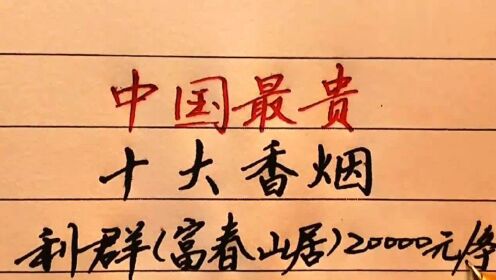 中国最贵
十大香烟
利群(富春山居)20000元/条